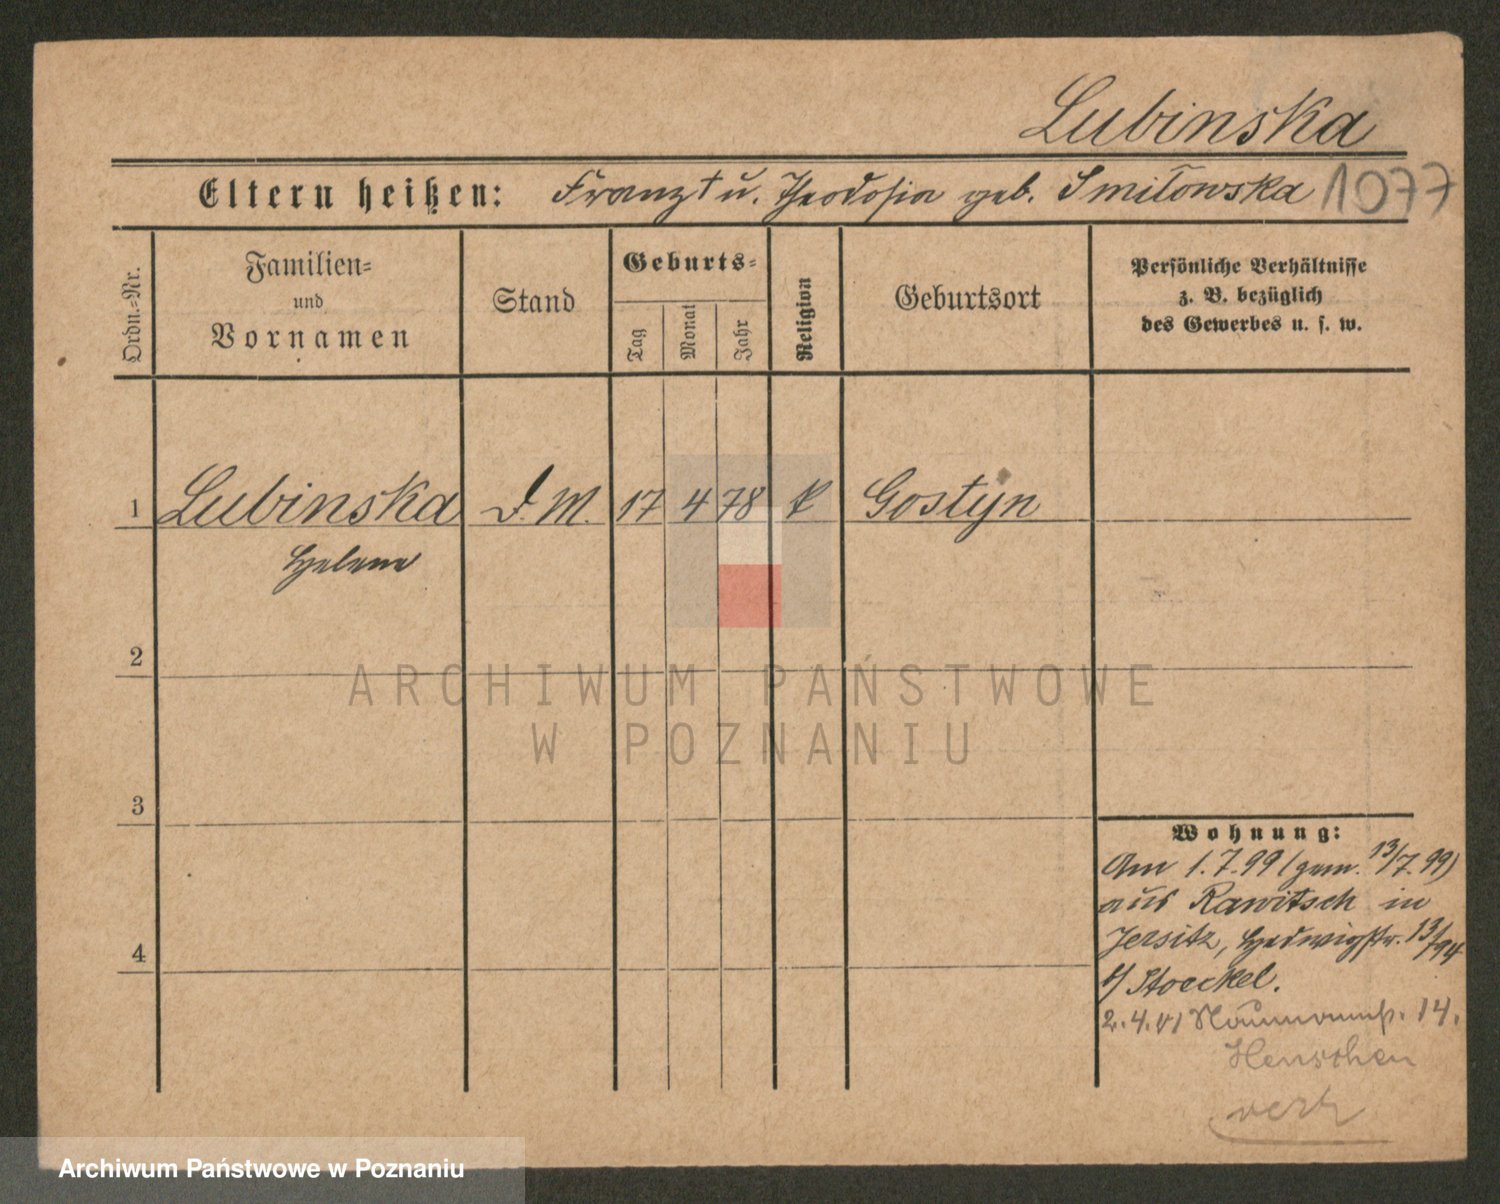 Lubinska
Eltern heißen: Franz † u. Theodosia geb. Smiłowska 1077
Ordn.=Nr.
Familien=
und
Vornamen
Stand
Geburts=
Tag
Monat
Jahr
Religion
Geburtsort
Persönliche Verhältnisse
z. B. bezüglich
des Gewerbes u. s. w.
1 Lubinska D. M. 17 4 78 k Gostyn
Helene
2
3
4
ARCHIWUM PAŃSTWOWE
W POZNANIU
Wohnung:
Am 1.7.99 (gem. 13/7.99)
aus Rawitsch in
Jersitz, Hedwigstr. 13/94
b/ Stoeckel.
2.4.01 Naumannstr. 14.
Henschen
verh
Archiwum Państwowe w Poznaniu